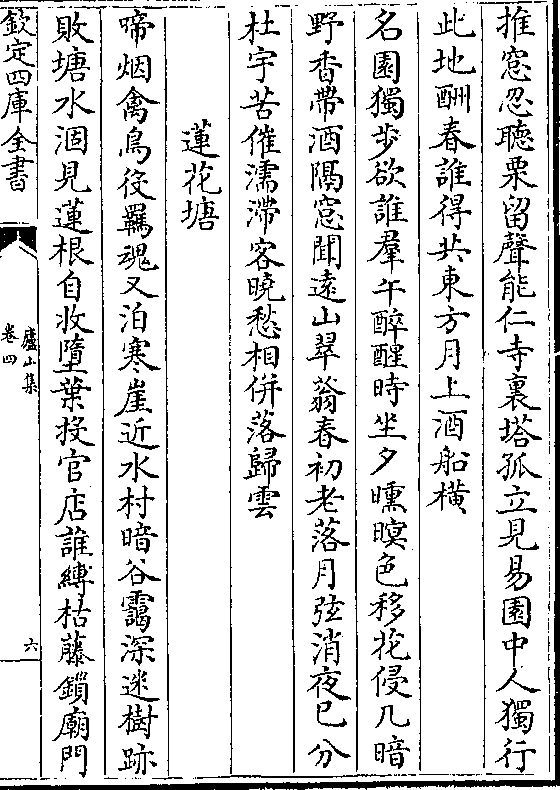 推窓忍聴栗留聲能仁寺裏塔孤立見易園中人獨行
此地酬春誰得共東方月上酒船横
名園獨步欲誰羣午醉醒時坐夕曛暝色移花侵几暗
野香帶酒隔窓聞遠山翠蓊春初老落月弦消夜已分
杜宇苦催濡滯客曉愁相併落歸雲
蓮花塘
啼烟禽鳥役羈魂又泊寒崖近水村暗谷靄深迷樹跡
敗塘水涸見蓮根自收墮葉投官店誰縛枯藤鎖廟門
欽定四庫全書
廬山集
卷四
六